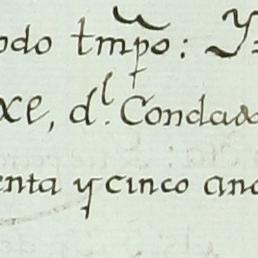 odo tmpo: Y
xe, d.l Condado
enta y cinco año